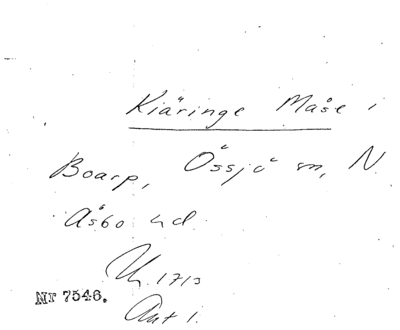 Kiäringe Måse i
Boarp, Össjö sn, N.
Åsbo hd.
U. 1713
Nr 7546.
Ant 1.